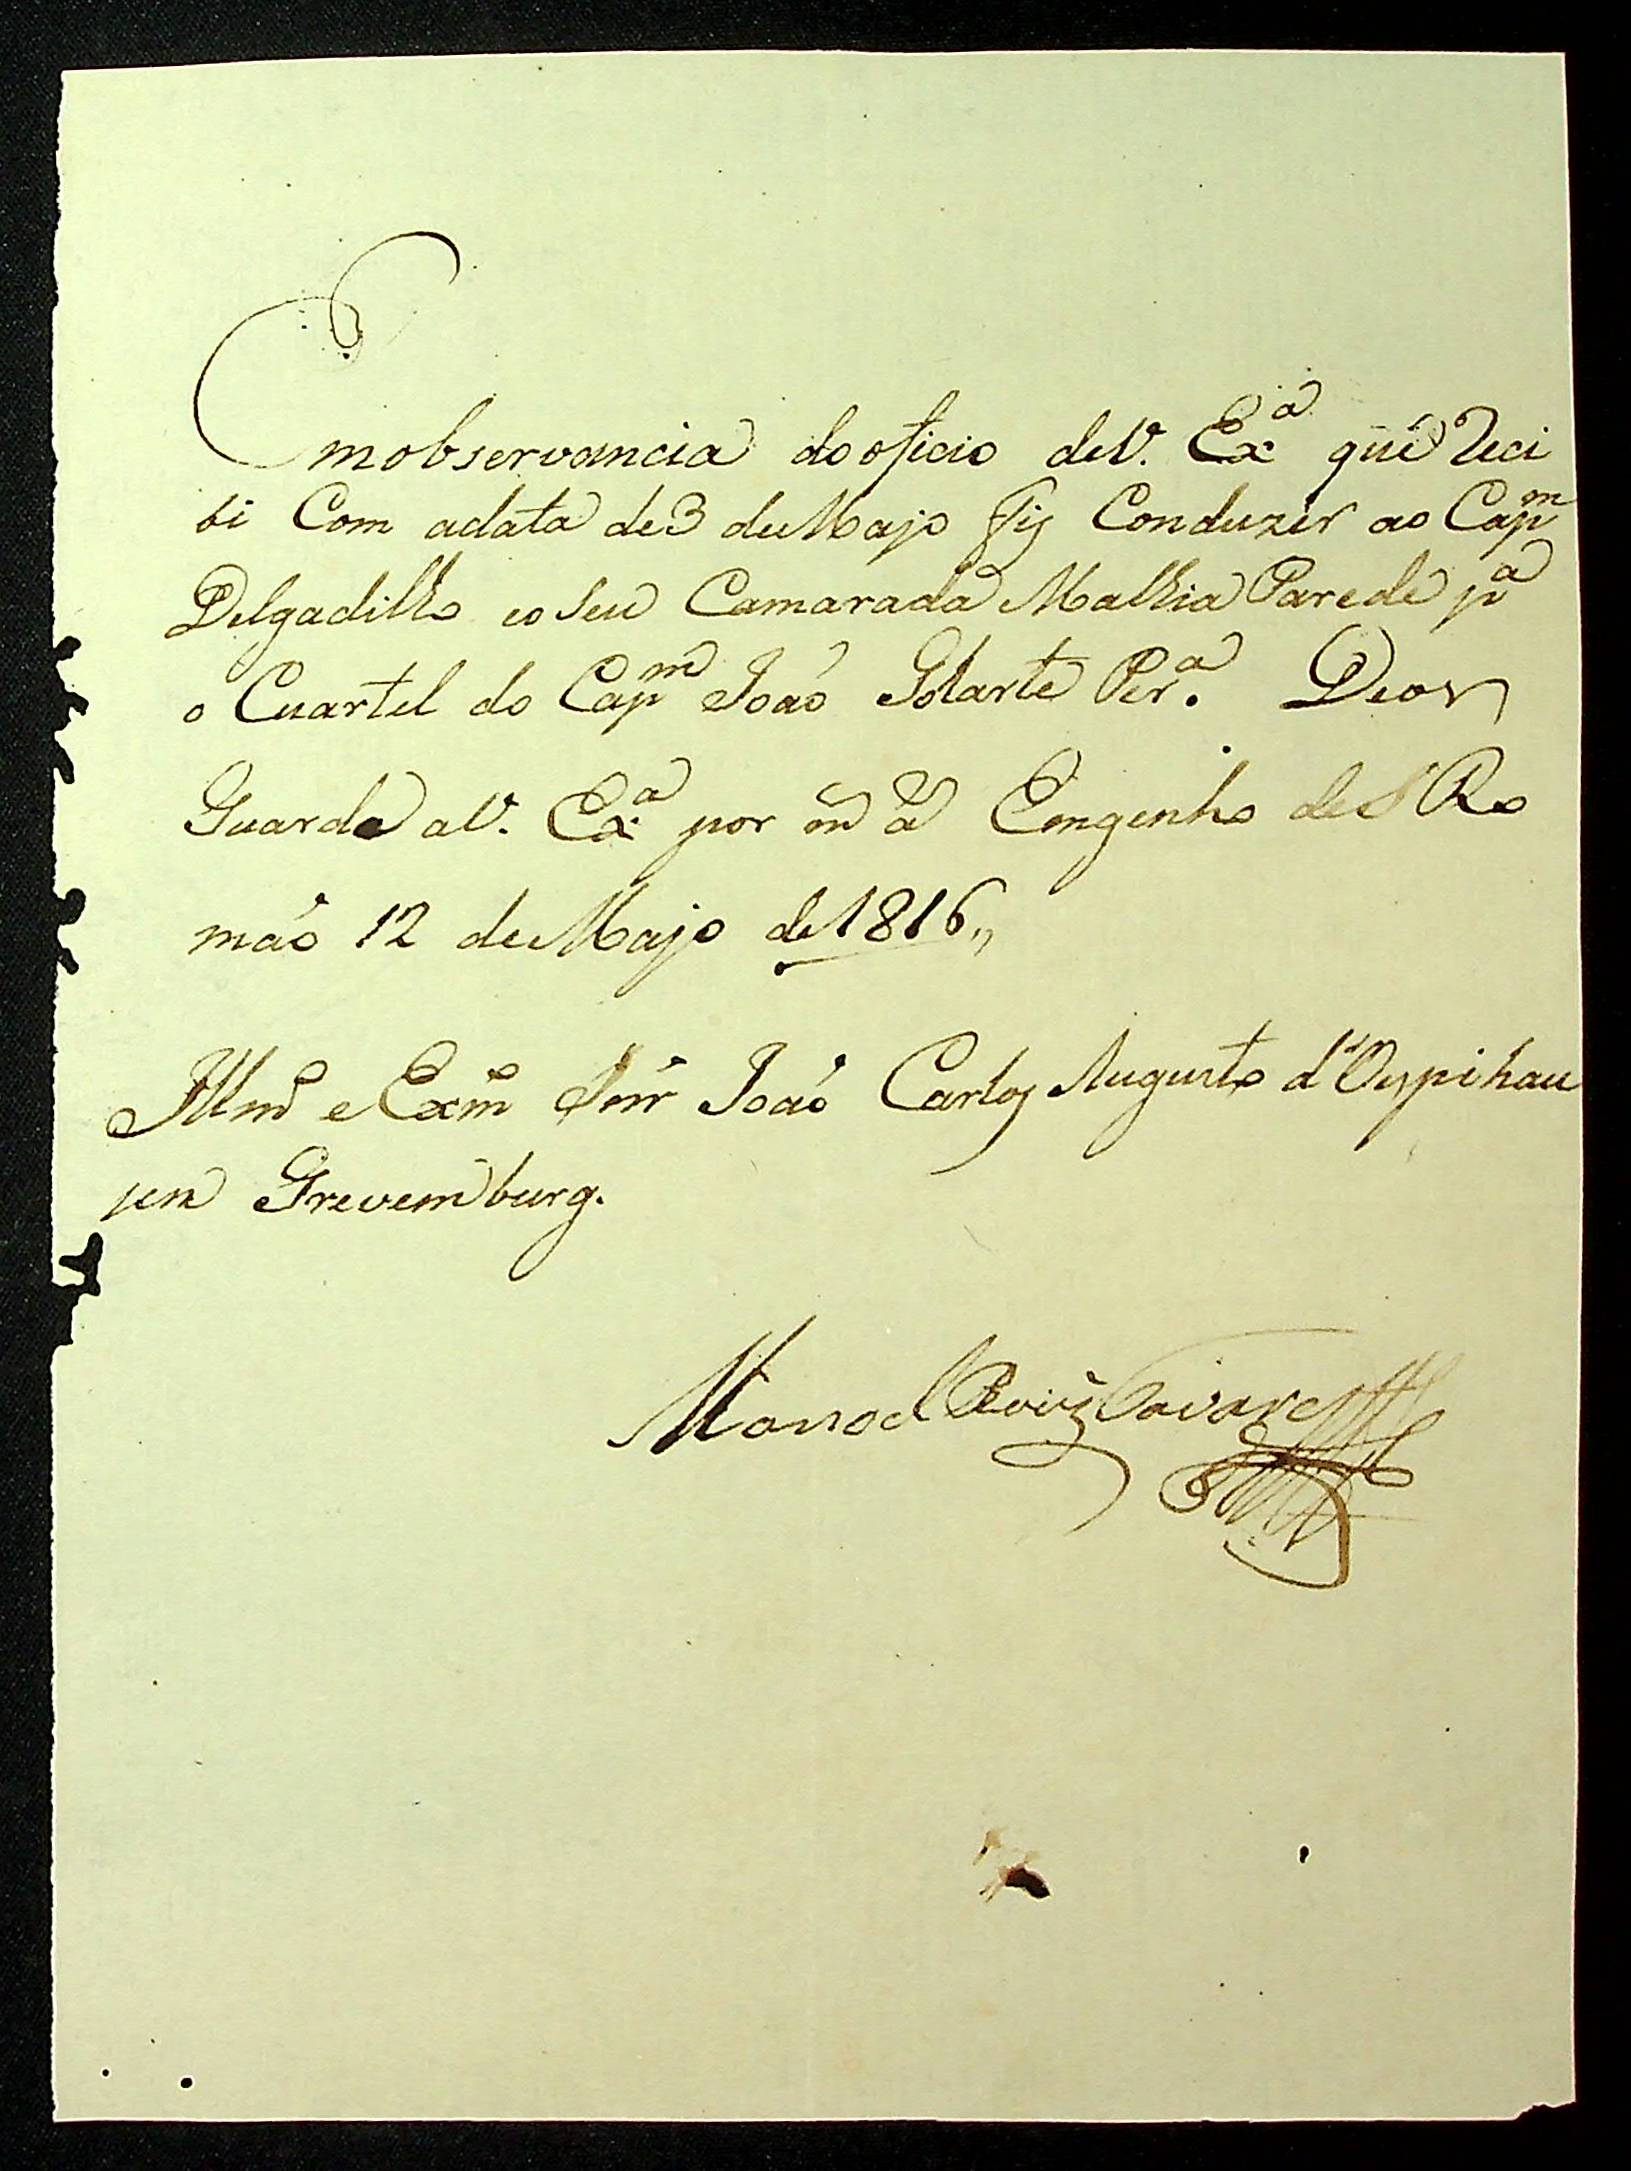 Emobservancia do oficio de V. Exª que Reci
bi Com adata de 3 de Majo Fis Conduzir ao Capm
Delgadilho eo seu Camarada Mathia Parede pª
o Cuartel do Capm João Golarte Perª. Deos
Guarde a V. Exª por m ã Emgenho de S Ro
mão 12 de Majo de 1816,,
Illmo e Exmo Snr João Carlos Augusto d'Oypihau
zen Grevemburg.
Manoel Roiz Tavares